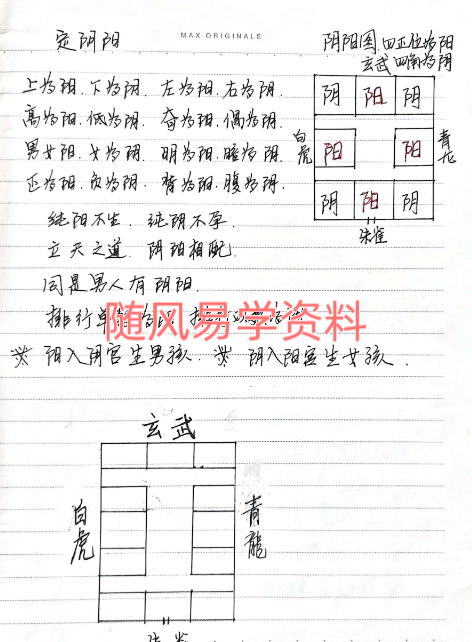 定阴阳
MAX ORIGINALS
阴阳图.四正位为阳
玄武 四角为阴
上为阳.下为阴. 左为阳.右为阴.
高为阳.低为阴. 奇为阳.偶为阴.
男为阳.女为阴. 明为阳.暗为阴.
正为阳.反为阴. 背为阳.腹为阴.
纯阳不生. 纯阴不孕.
立天之道. 阴阳相配.
同是男人有阴阳.
排行单数为阳.
随风易学资料
※ 阳入阴宫生男孩. ※ 阴入阳宫生女孩.
阴 阳 阴
白虎
阳 阳
青龙
阴 阳 阴
朱雀
玄武
白虎
青龍
朱雀